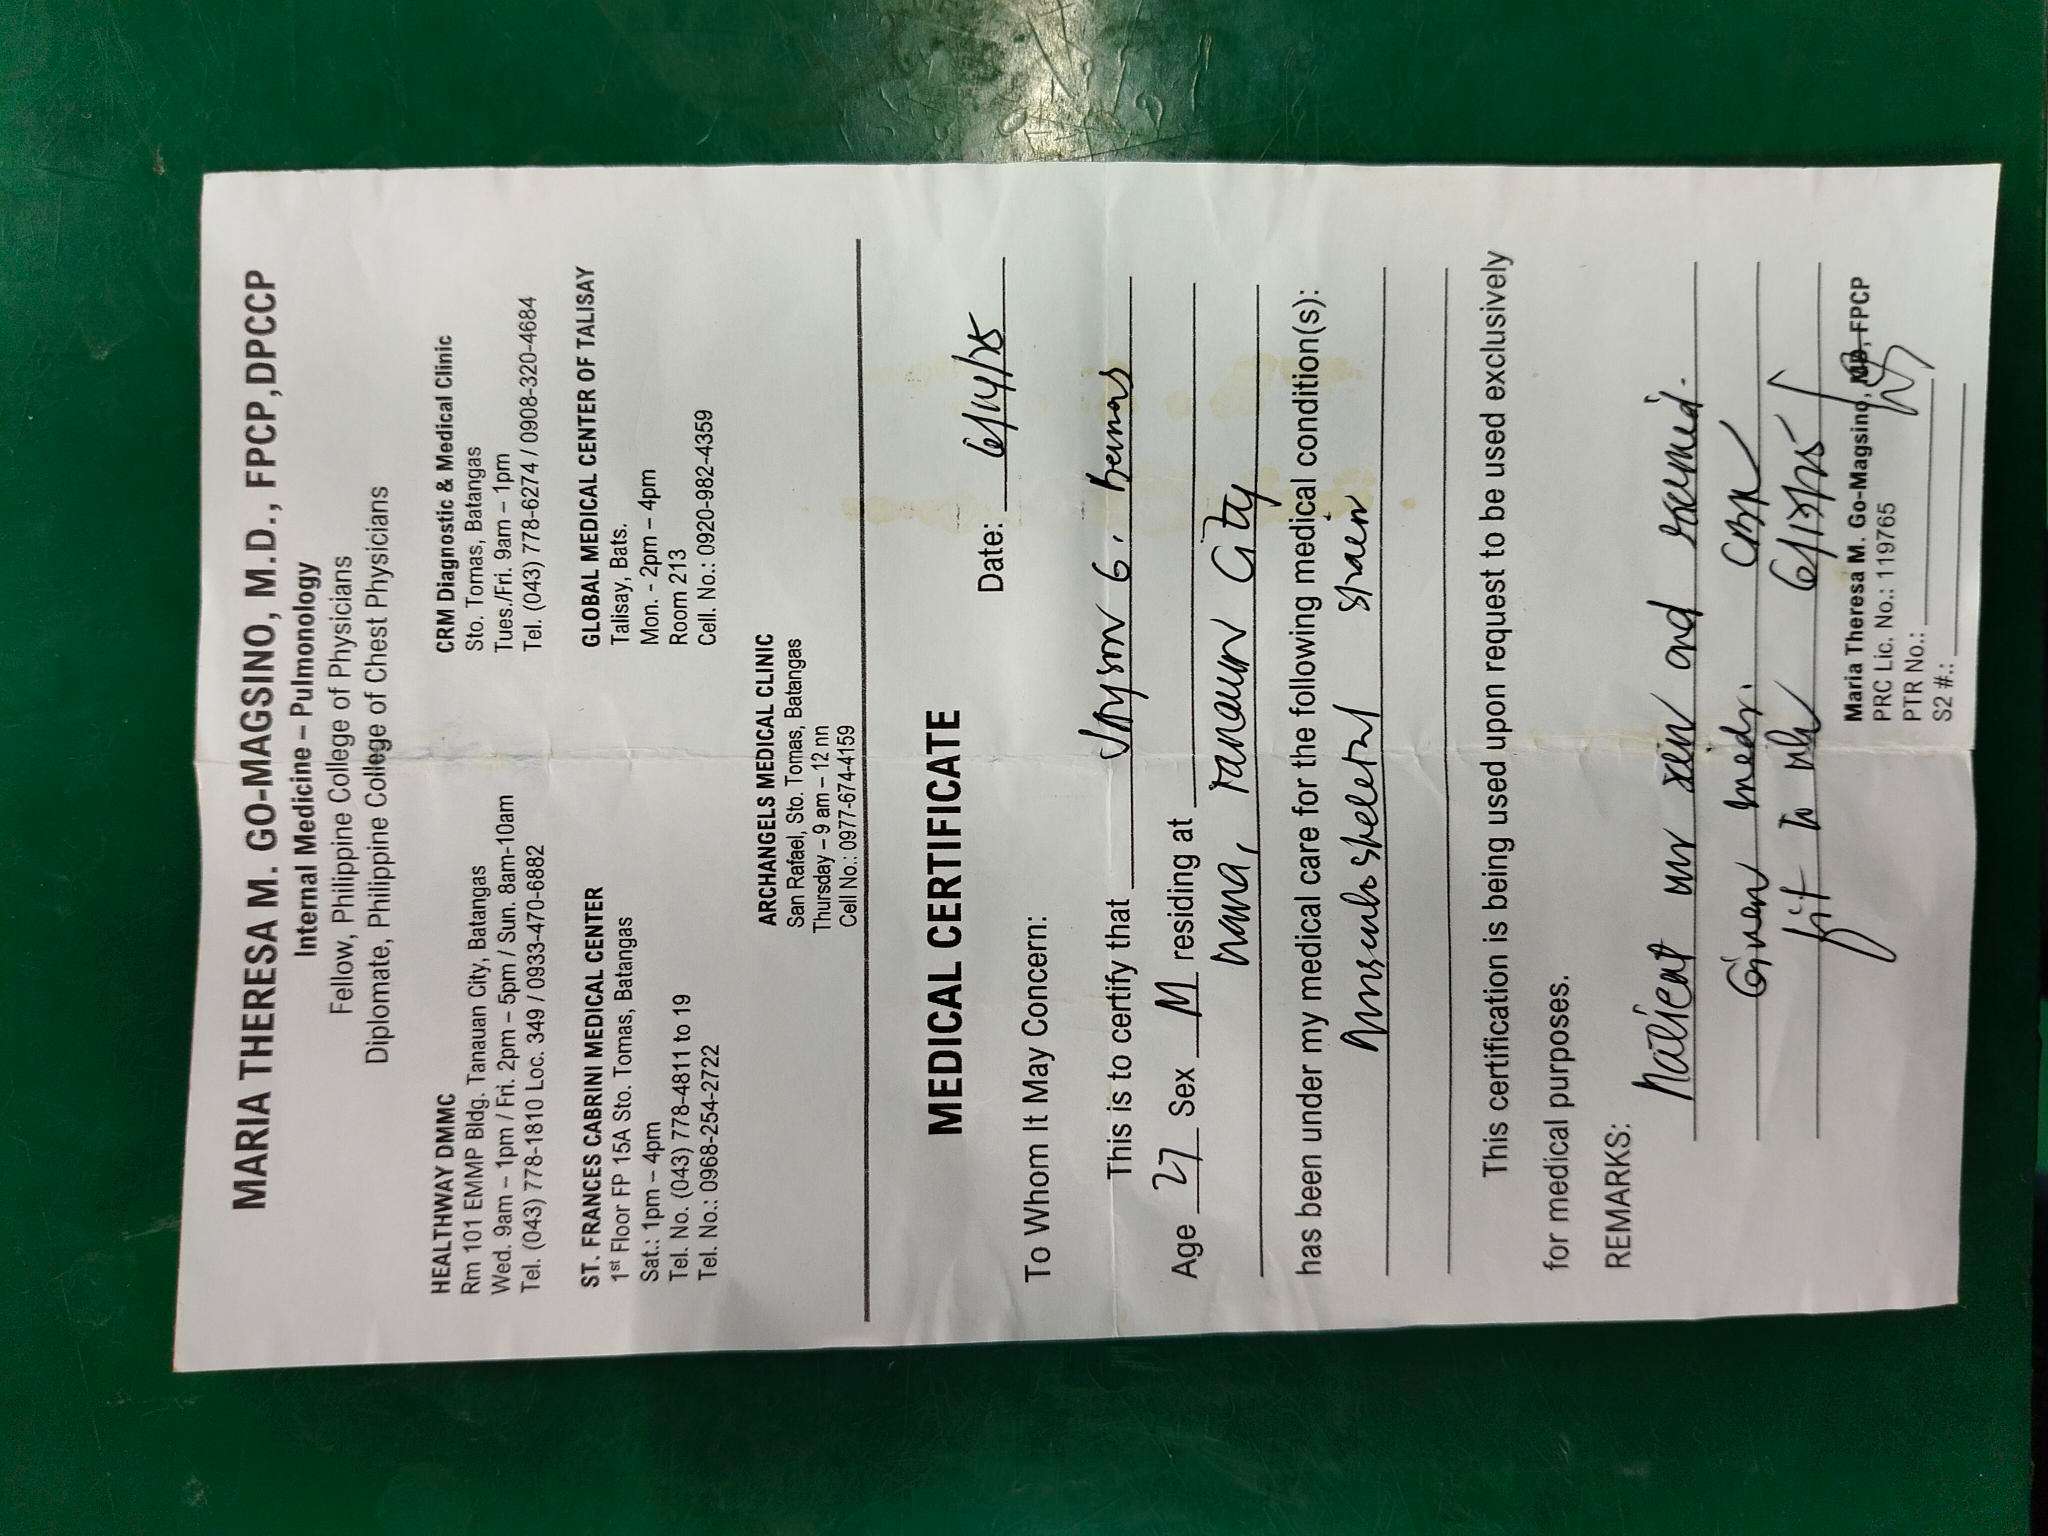 MARIA THERESA M. GO-MAGSINO, M.D., FPCP,DPCCP
Internal Medicine – Pulmonology
Fellow, Philippine College of Physicians
Diplomate, Philippine College of Chest Physicians
HEALTHWAY DMMC
Rm 101 EMMP Bldg. Tanauan City, Batangas
Wed. 9am – 1pm / Fri. 2pm – 5pm / Sun. 8am-10am
Tel. (043) 778-1810 Loc. 349 / 0933-470-6882
CRM Diagnostic & Medical Clinic
Sto. Tomas, Batangas
Tues./Fri. 9am – 1pm
Tel. (043) 778-6274 / 0908-320-4684
ST. FRANCES CABRINI MEDICAL CENTER
1st Floor FP 15A Sto. Tomas, Batangas
Sat.: 1pm – 4pm
Tel. No. (043) 778-4811 to 19
Tel. No.: 0968-254-2722
GLOBAL MEDICAL CENTER OF TALISAY
Talisay, Bats.
Mon. - 2pm – 4pm
Room 213
Cell. No.: 0920-982-4359
ARCHANGELS MEDICAL CLINIC
San Rafael, Sto. Tomas, Batangas
Thursday – 9 am – 12 nn
Cell No.: 0977-674-4159
MEDICAL CERTIFICATE
Date: 6/14/25
To Whom It May Concern:
This is to certify that Jayson G.
Age 27 Sex M residing at
Tanauan City
has been under my medical care for the following medical condition(s):
Musculoskeletal strain
This certification is being used upon request to be used exclusively
for medical purposes.
REMARKS:
Patient was seen and examined.
Given meds.
fit to
Maria Theresa M. Go-Magsino, MD, FPCP
PRC Lic. No.: 119765
PTR No.:
S2 #.: